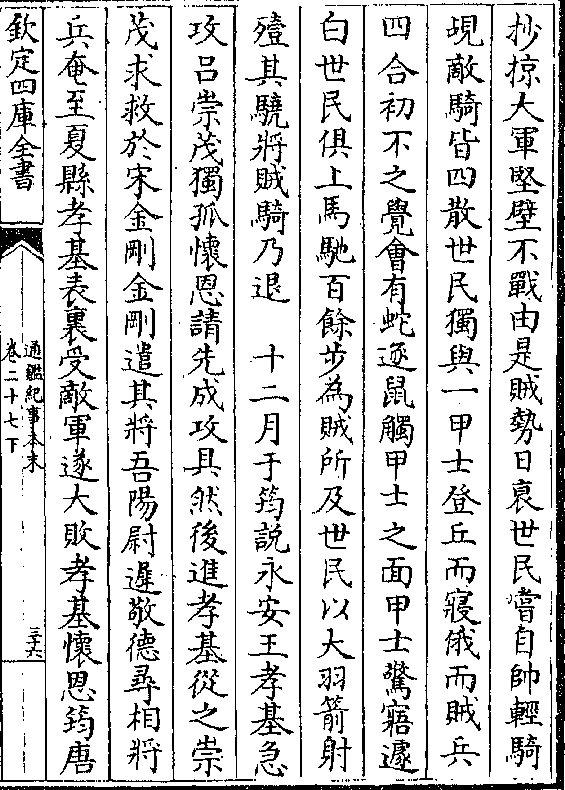 抄掠大軍堅壁不戰由是賊勢日衰世民嘗自帥輕騎
覘敵騎皆四散世民獨與一甲士登丘而寢俄而賊兵
四合初不之覺會有蛇逐鼠觸甲士之面甲士驚寤遽
白世民俱上馬馳百餘步為賊所及世民以大羽箭射
殪其驍將賊騎乃退　十二月于筠說永安王孝基急
攻呂崇茂獨孤懷恩請先成攻具然後進孝基從之崇
茂求救於宋金剛金剛遣其將吾陽尉遲敬德尋相將
兵奄至夏縣孝基表裏受敵軍遂大敗孝基懷恩筠唐
欽定四庫全書
通鑑紀事本末
卷二十七下
三六